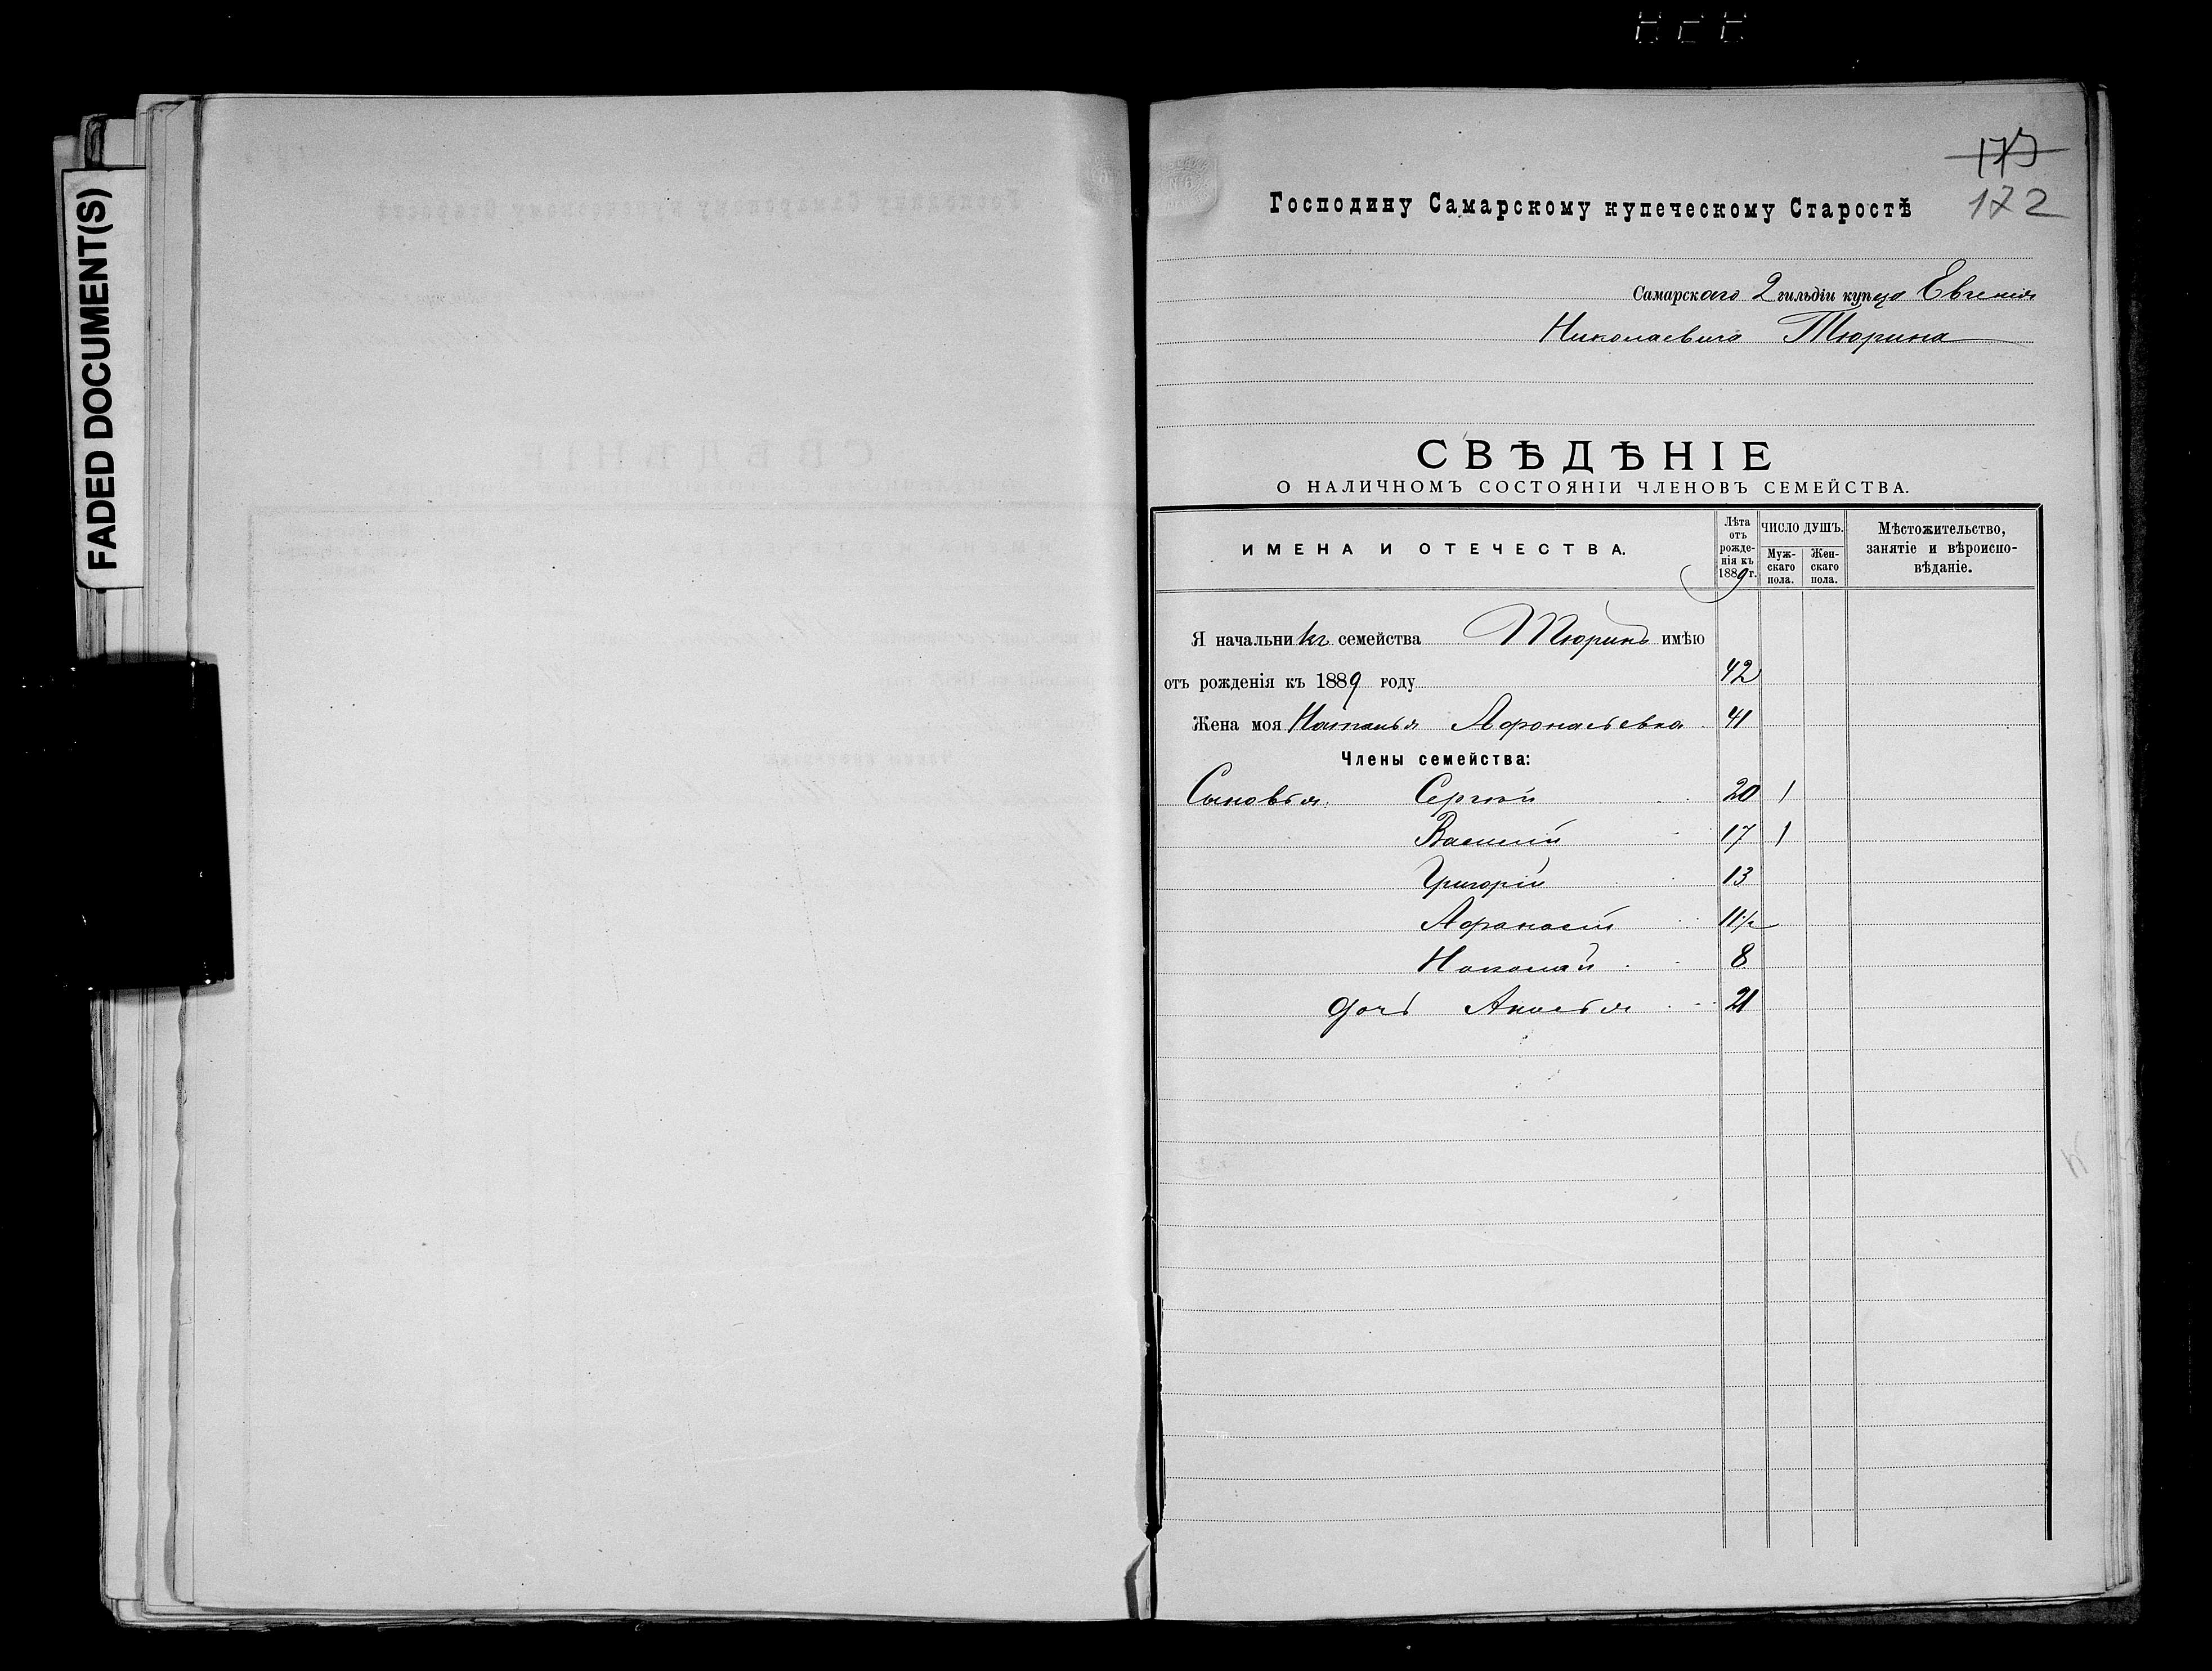 FADED DOCUMENT(S)
172
Господину Самарскому купеческому Старостѣ
Самарскаго 2 гильдіи купца Евгенія
Николаевича Тюрина
СВѢДѢНІЕ
О НАЛИЧНОМЪ СОСТОЯНІИ ЧЛЕНОВЪ СЕМЕЙСТВА.
ИМЕНА И ОТЕЧЕСТВА.
Лѣта
отъ
рожде-
нія къ
1889 г.
ЧИСЛО ДУШЪ.
Муж-
скаго
пола.
Жен-
скаго
пола.
Мѣстожительство,
занятіе и вѣроиспо-
вѣданіе.
Я начальникъ семейства Тюринъ имѣю
отъ рожденія къ 1889 году 42
Жена моя Наталья Афонасьевна 41
Члены семейства:
Сыновья: Сергѣй 20 1
Василій 17 1
Григорій 13
Афанасій 11½
Николай 8
дочь 21